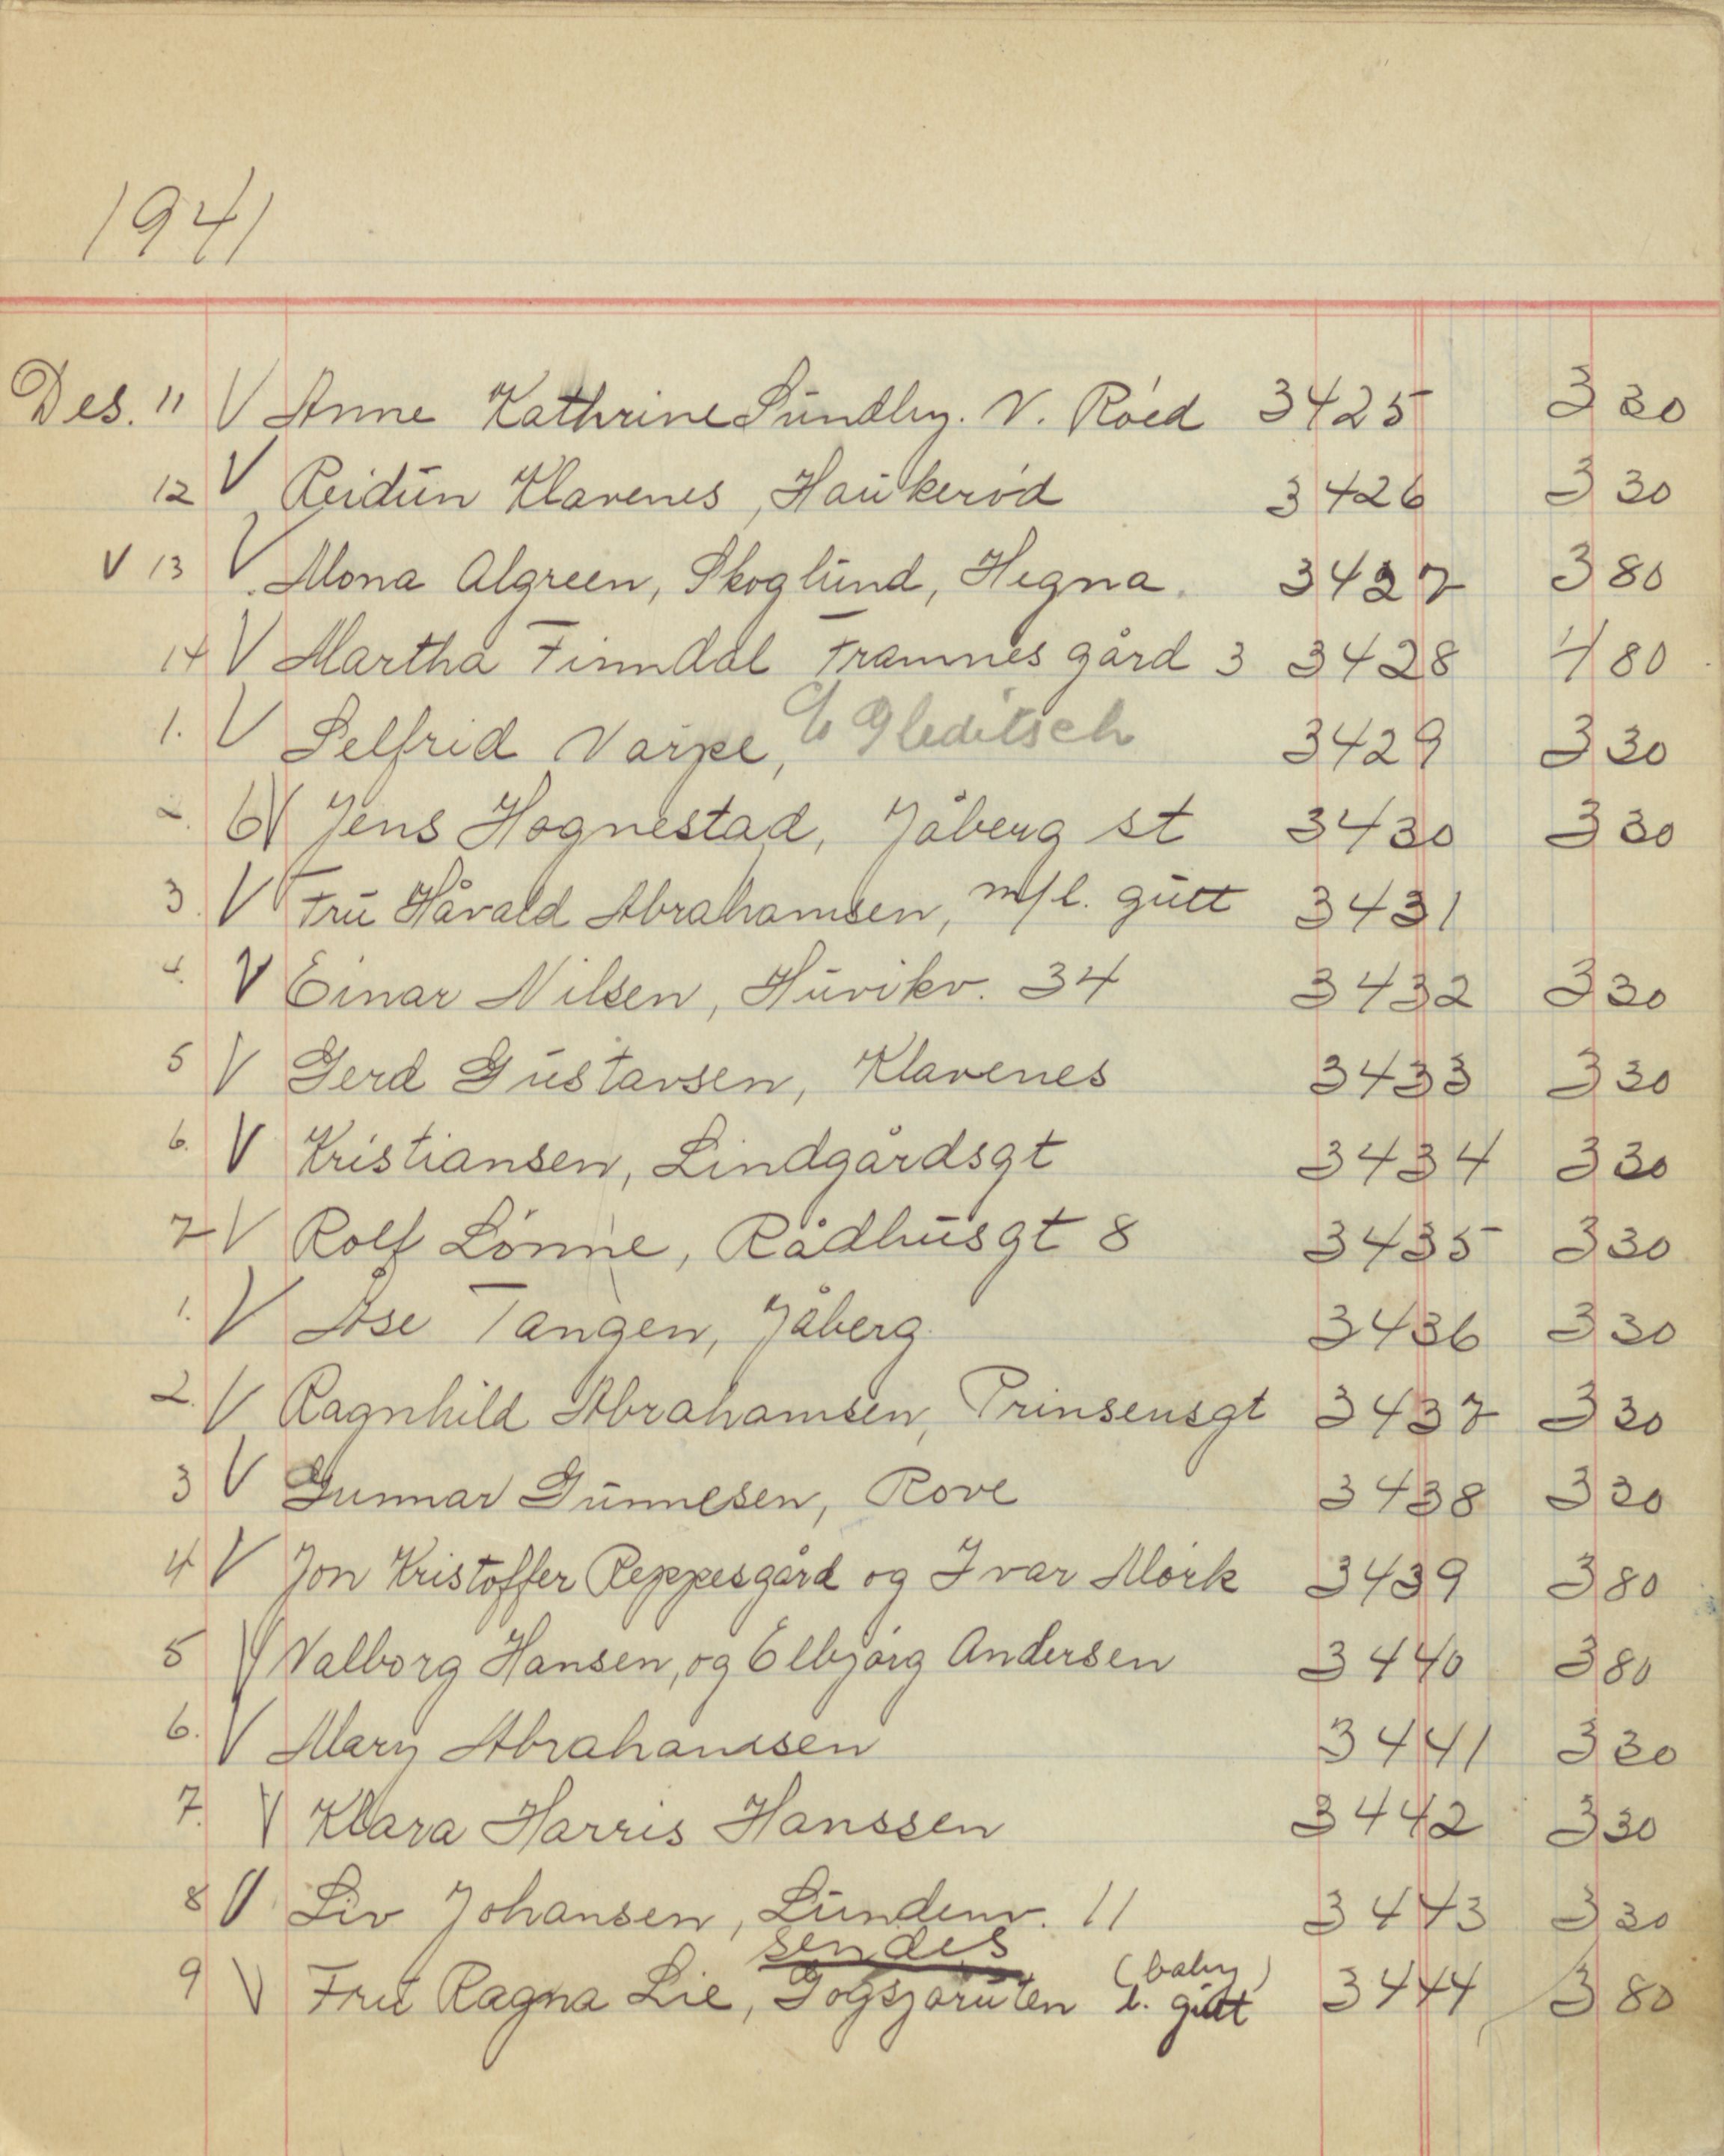 1941
Des. 11 V Anne Kathrine Sundby. V. Róed 3425 3 30
12 V Reidūn Klavenes, Haūkeród 3426 3 30
V 13 V Mona Algreen, Skoglūnd, Hegna. 3427 3 80
14 V Martha Finndal Framnes gård 3 3428 4 80
1. V Selfrid Varpe, % Gleditsch 3429 3 30
2. 6 V Jens Hognestad, Jåberg st 3430 3 30
3. V Frū Håvald Abrahamsen, m/l. gūtt 3431
4. V Einar Nilsen, Hūvikv. 34 3432 3 30
5 V Gerd Gūstavsen, Klavenes 3433 3 30
6. V Kristiansen, Lindgårdsgt 3434 3 30
7 V Rolf Lónne, Rådhūsgt 8 3435 3 30
1. V Åse Tangen, Jåberg. 3436 3 30
2. V Ragnhild Abrahamsen, Prinsensgt 3437 3 30
3 V Gunnar Gūnnesen, Rove 3438 3 30
4 V Jon Kristoffer Reppesgård og Ivar Mórk 3439 3 80
5 V Valborg Hansen, og Elbjórg Andersen 3440 3 80
6. V Mary Abrahamsen 3441 3 30
7. V Klara Harris Hanssen 3442 3 30
8 V Liv Johansen, Lūndenv. 11 3443 3 30
sendes
9 V Frū Ragna Lie, Gogsjórūten (baby) l. gūtt 3444 3 80